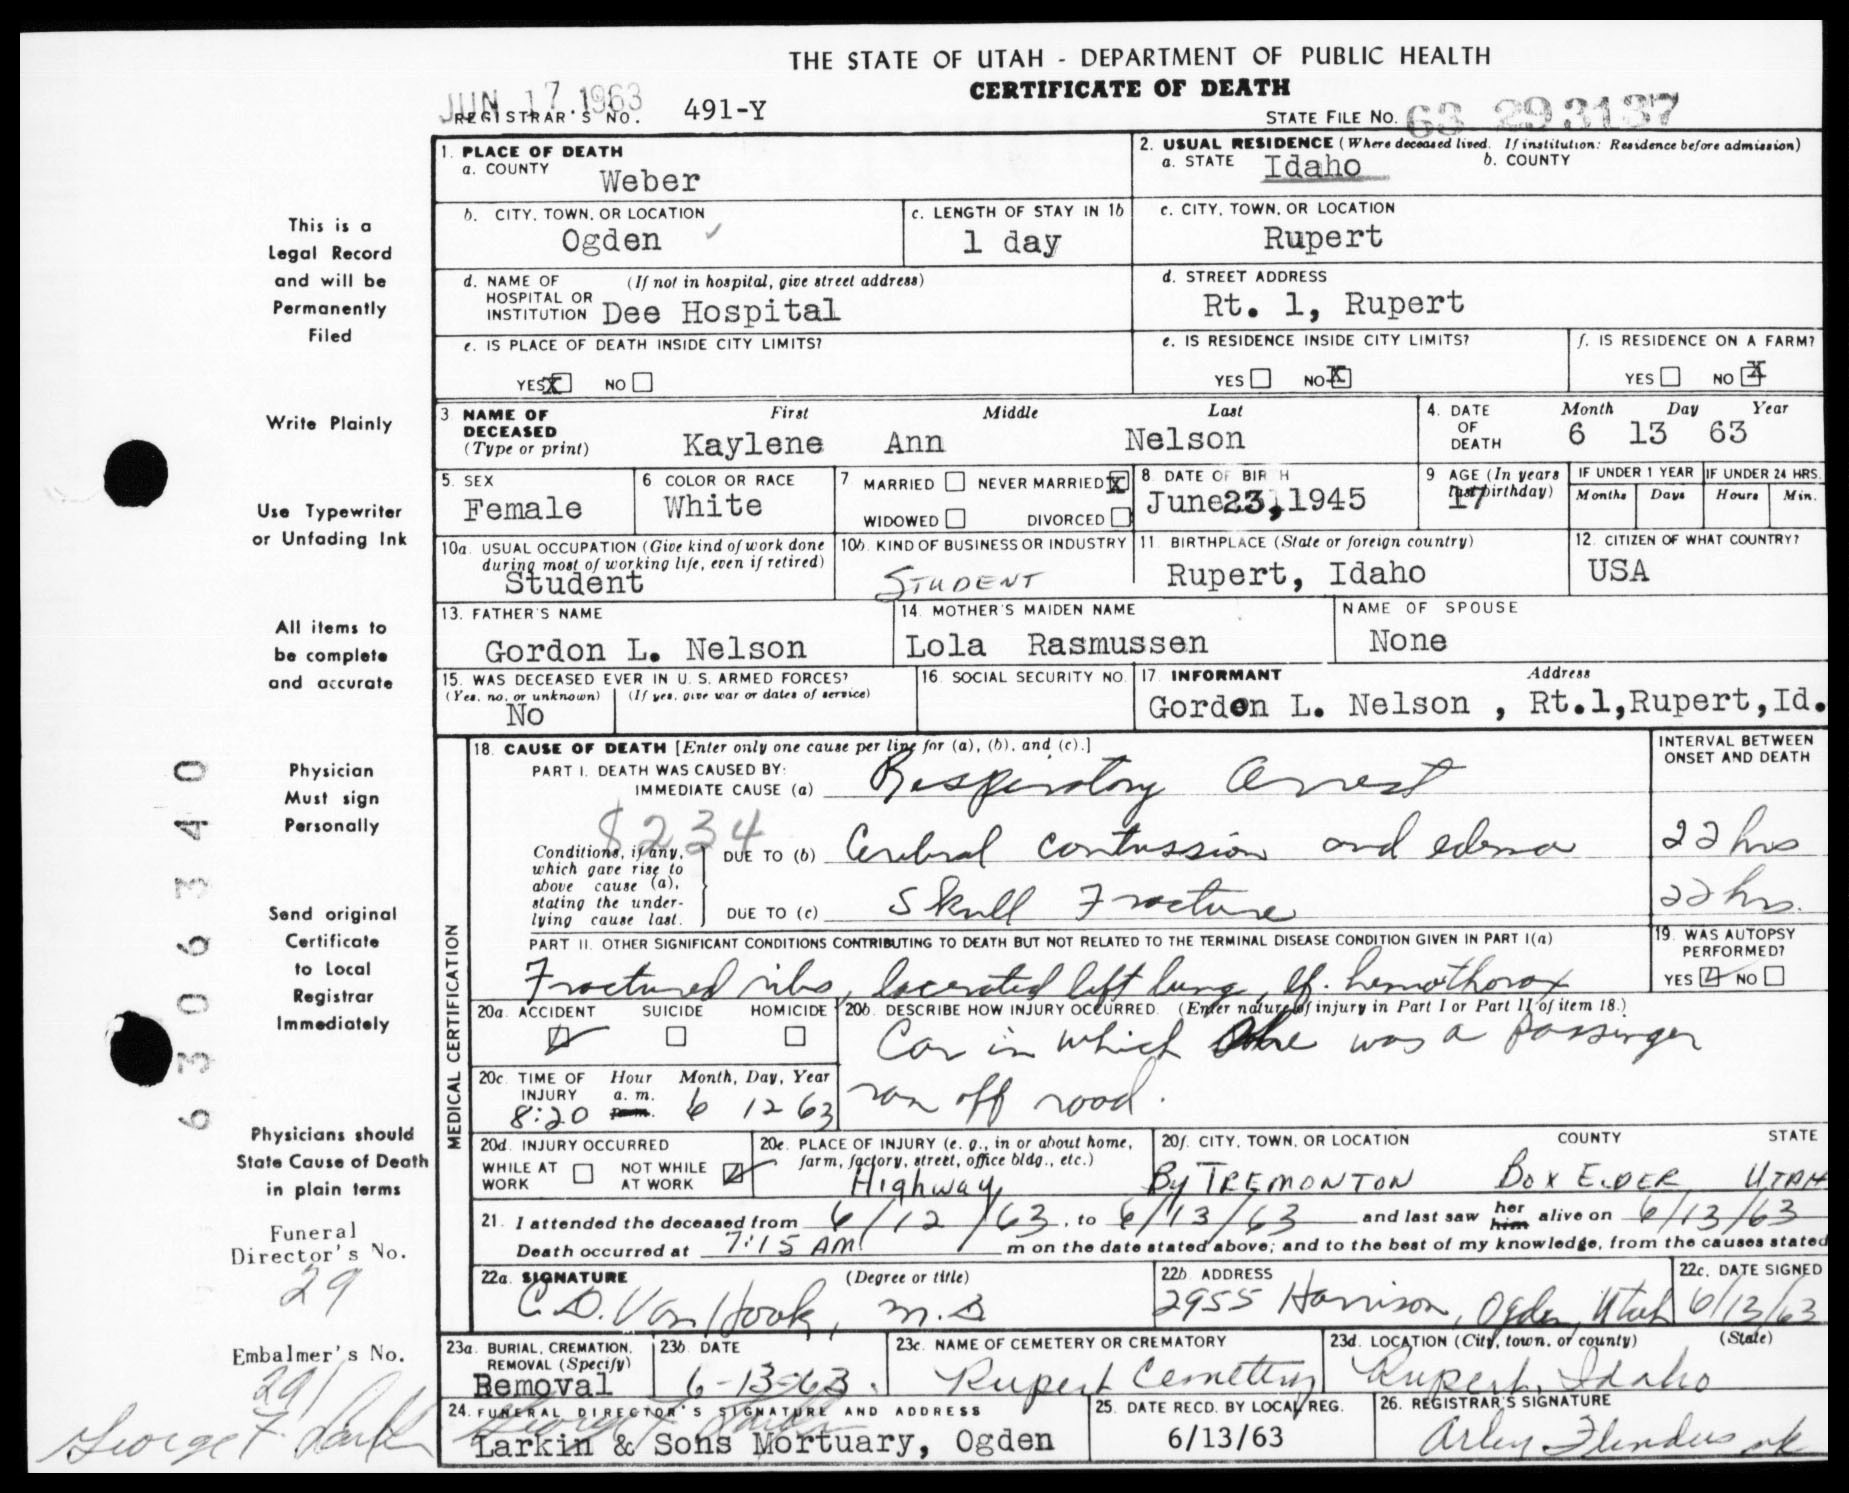 THE STATE OF UTAH - DEPARTMENT OF PUBLIC HEALTH
CERTIFICATE OF DEATH
JUN 17 1963
REGISTRAR'S NO. 491-Y
STATE FILE NO. 63 293137
1. PLACE OF DEATH
a. COUNTY Weber
2. USUAL RESIDENCE (Where deceased lived. If institution: Residence before admission)
a. STATE Idaho b. COUNTY
b. CITY, TOWN, OR LOCATION Ogden
c. LENGTH OF STAY IN 1b 1 day
c. CITY, TOWN, OR LOCATION Rupert
d. NAME OF HOSPITAL OR INSTITUTION (If not in hospital, give street address) Dee Hospital
d. STREET ADDRESS Rt. 1, Rupert
e. IS PLACE OF DEATH INSIDE CITY LIMITS?
YES X NO
e. IS RESIDENCE INSIDE CITY LIMITS?
YES NO X
f. IS RESIDENCE ON A FARM?
YES NO X
3 NAME OF DECEASED (Type or print)
First Middle Last
Kaylene Ann Nelson
4. DATE OF DEATH
Month Day Year
6 13 63
5. SEX Female
6 COLOR OR RACE White
7 MARRIED NEVER MARRIED X
WIDOWED DIVORCED
8 DATE OF BIRTH June 23, 1945
9 AGE (In years last birthday) 17
IF UNDER 1 YEAR Months Days
IF UNDER 24 HRS. Hours Min.
10a. USUAL OCCUPATION (Give kind of work done during most of working life, even if retired) Student
10b. KIND OF BUSINESS OR INDUSTRY STUDENT
11 BIRTHPLACE (State or foreign country) Rupert, Idaho
12 CITIZEN OF WHAT COUNTRY? USA
13. FATHER'S NAME Gordon L. Nelson
14. MOTHER'S MAIDEN NAME Lola Rasmussen
NAME OF SPOUSE None
15. WAS DECEASED EVER IN U. S. ARMED FORCES?
(Yes, no, or unknown) (If yes, give war or dates of service)
No
16. SOCIAL SECURITY NO.
17 INFORMANT Address
Gordon L. Nelson , Rt.1,Rupert,Id.
MEDICAL CERTIFICATION
18. CAUSE OF DEATH [Enter only one cause per line for (a), (b), and (c).]
INTERVAL BETWEEN ONSET AND DEATH
PART I. DEATH WAS CAUSED BY:
IMMEDIATE CAUSE (a) Respiratory Arrest
8234
Conditions, if any, which gave rise to above cause (a), stating the underlying cause last.
DUE TO (b) Cerebral contussion and edema 22 hrs
DUE TO (c) Skull Fracture 22 hrs.
PART II. OTHER SIGNIFICANT CONDITIONS CONTRIBUTING TO DEATH BUT NOT RELATED TO THE TERMINAL DISEASE CONDITION GIVEN IN PART I(a)
Fractured ribs, lacerated left lung, lf. hemothorax
19. WAS AUTOPSY PERFORMED?
YES NO
20a. ACCIDENT SUICIDE HOMICIDE
20b. DESCRIBE HOW INJURY OCCURRED. (Enter nature of injury in Part I or Part II of item 18.)
Car in which she was a passenger
ran off road.
20c. TIME OF INJURY Hour Month, Day, Year
a. m.
p.m.
8:20 6 12 63
20d. INJURY OCCURRED
WHILE AT WORK NOT WHILE AT WORK
20e. PLACE OF INJURY (e. g., in or about home, farm, factory, street, office bldg., etc.)
Highway
20f. CITY, TOWN, OR LOCATION COUNTY STATE
By TREMONTON BOX ELDER UTAH
21. I attended the deceased from 6/12/63, to 6/13/63 and last saw her him alive on 6/13/63
Death occurred at 7:15 AM m on the date stated above; and to the best of my knowledge, from the causes stated
22a. SIGNATURE (Degree or title)
C. D. Van Hook, M. D
22b. ADDRESS
2955 Harrison, Ogden, Utah
22c. DATE SIGNED
6/13/63
23a. BURIAL, CREMATION, REMOVAL (Specify) Removal
23b. DATE 6-13-63.
23c. NAME OF CEMETERY OR CREMATORY Rupert Cemetery
23d. LOCATION (City, town, or county) (State) Rupert, Idaho
24. FUNERAL DIRECTOR'S SIGNATURE AND ADDRESS
George F. Larkin
Larkin & Sons Mortuary, Ogden
25. DATE RECD. BY LOCAL REG.
6/13/63
26. REGISTRAR'S SIGNATURE
Arley Flinders
This is a
Legal Record
and will be
Permanently
Filed
Write Plainly
Use Typewriter
or Unfading Ink
All items to
be complete
and accurate
Physician
Must sign
Personally
Send original
Certificate
to Local
Registrar
Immediately
Physicians should
State Cause of Death
in plain terms
Funeral
Director's No.
29
Embalmer's No.
291
George F. Larkin
6306340